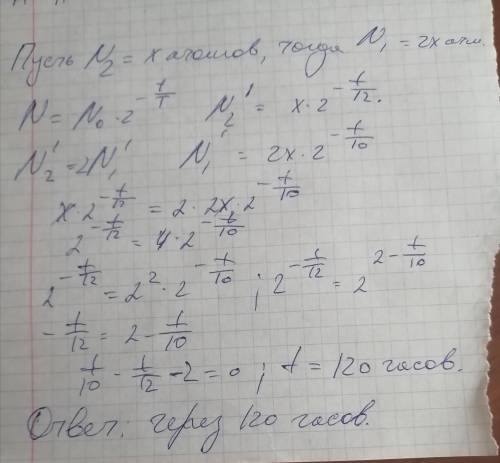 Пусть N₂ = x атомов, тогда N₁ = 2x атм.
N = N₀ · 2^(-t/T)   N₂' = x · 2^(-t/12).
N₂' = 2N₁'   N₁' = 2x · 2^(-t/10)
x · 2^(-t/12) = 2 · 2x · 2^(-t/10)
2^(-t/12) = 4 · 2^(-t/10)
2^(-t/12) = 2² · 2^(-t/10) ; 2^(-t/12) = 2^(2 - t/10)
-t/12 = 2 - t/10
t/10 - t/12 - 2 = 0 ; t = 120 часов.
Ответ: через 120 часов.